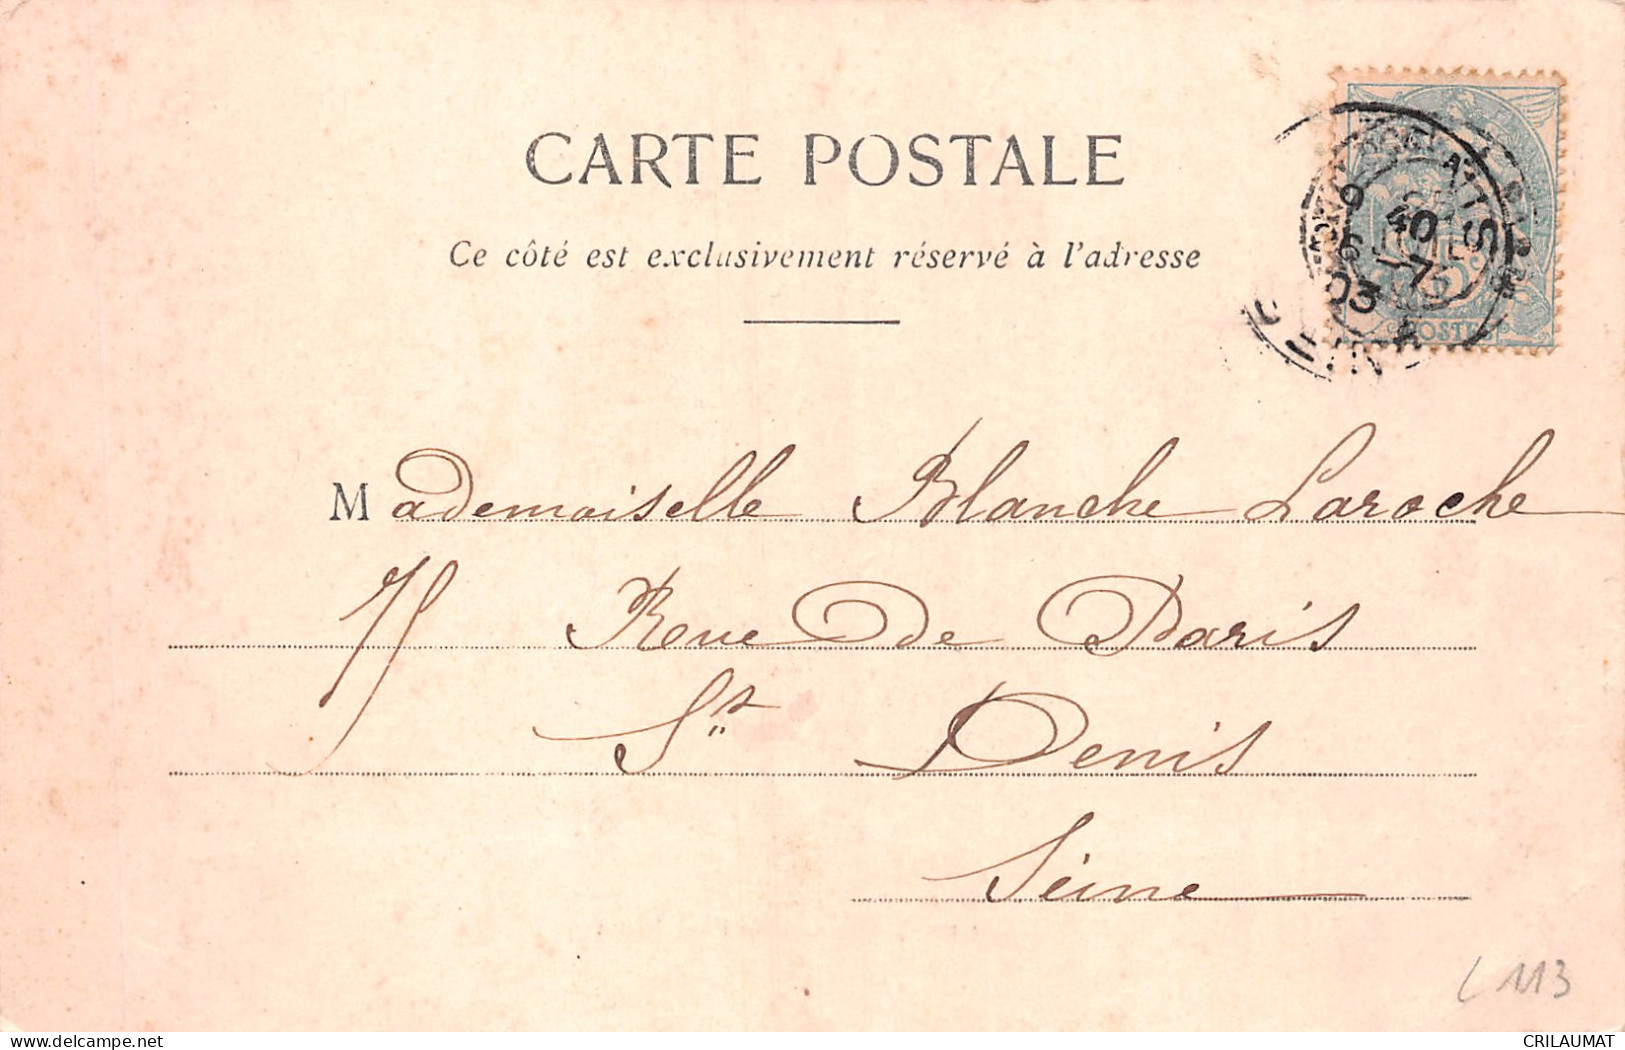 CARTE POSTALE
Ce côté est exclusivement réservé à l'adresse
Mademoiselle Blanche Laroche
Rue De Paris
St Denis
Seine
113
POSTES
9 40
03
www.delcampe.net
CRILAUMAT